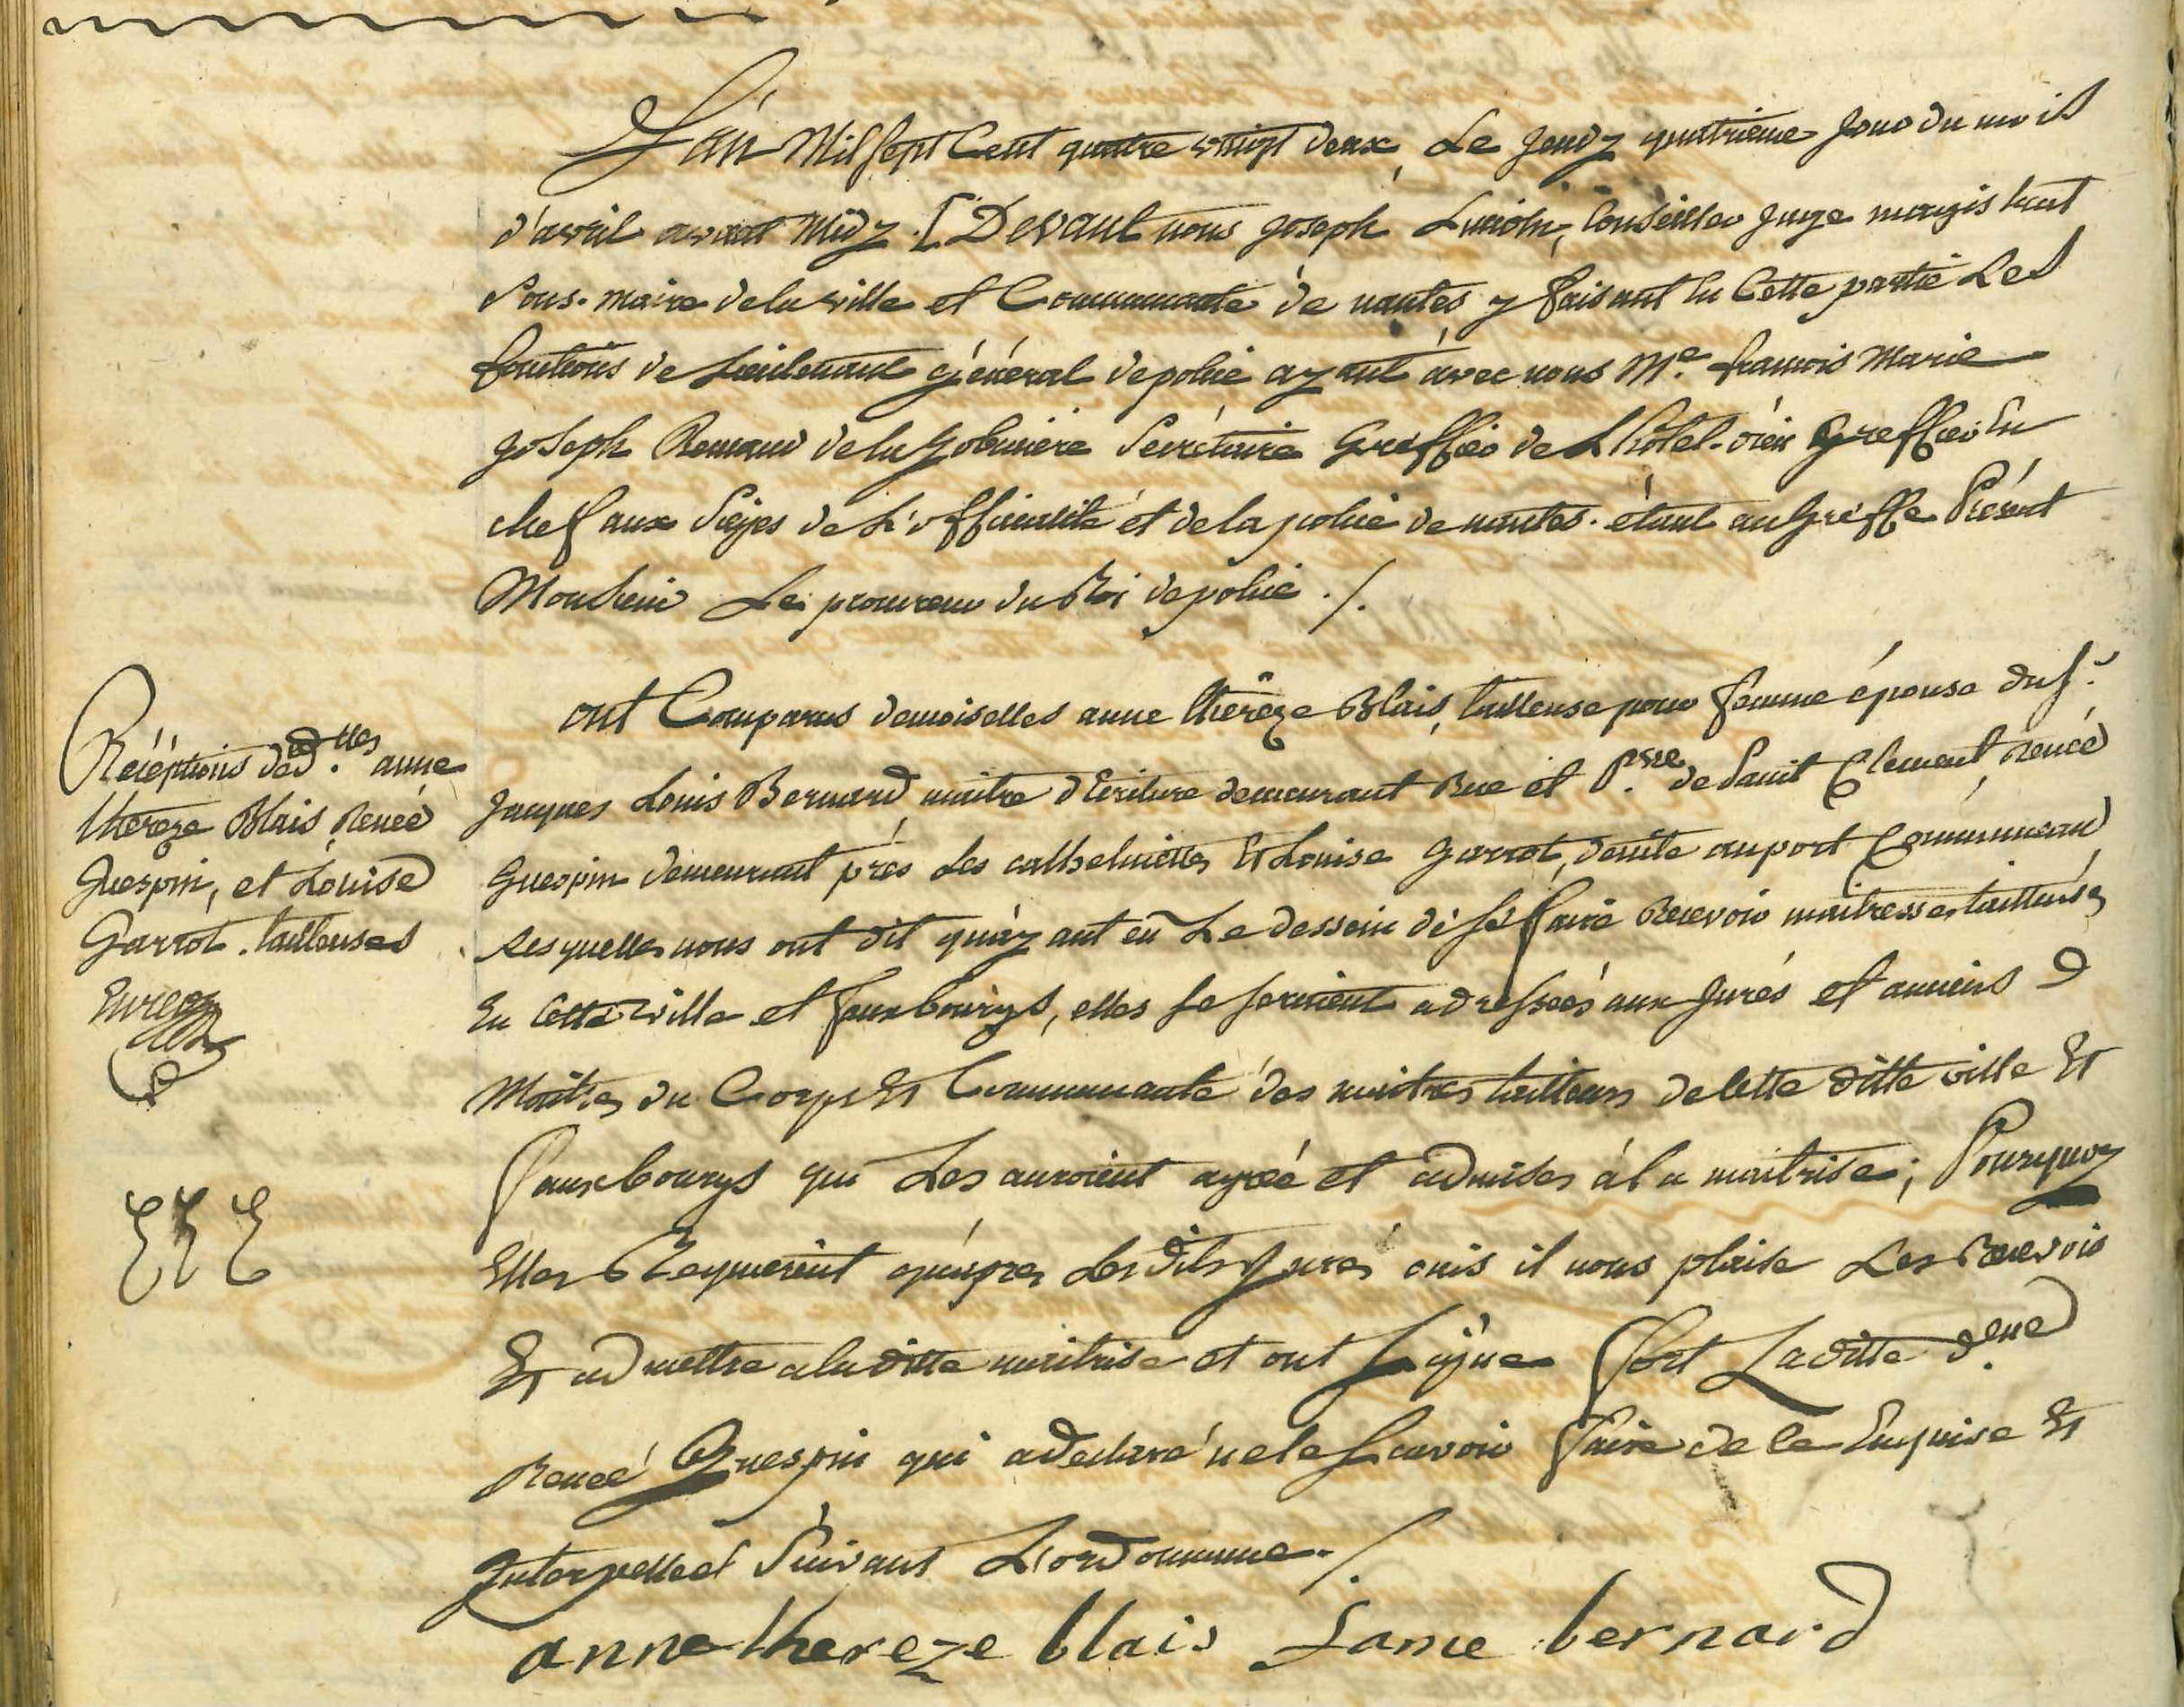 L'an Mil Sept Cent quatre vingt deux, Le Jeudy quatrieme Jour du mois
d'avril avant Midy. [Devant nous Joseph Conseiller Juge magistrat
Sous-maire de la ville et Communauté de nantes y faisant En Cette partie Les
fonctions de Lieutenant général de police ayant avec nous Me. francois Marie
Joseph Renaud de la Gobiniere Secrétaire Greffier de L'hôtel-dieu Greffier En
chef aux Sieges de L'officialité et de la police de nantes. étant au Greffe Présent
Monsieur Le procureur du Roi de police ./.
ont Comparus demoiselles anne thérèze Blais, tailleuse pour femme épouse du Sr.
Jacques Louis Bernard, maitre d'Ecriture demeurant Rue et P.sse de Saint Clement, Renée
Guespin demeurant près Les catthelinettes Et Louise Garrot, demte au port Communeau,
Lesquelles nous ont dit qu'ayant eu Le dessein de se faire Recevoir maitresses tailleuses
En Cette ville et fauxbourgs, elles se seroient adressées aux Jurés et anciens
Maitres du Corps Et Communauté des maitres tailleurs de Cette ditte ville Et
fauxbourgs qui Les auroient agréé et admises à la maitrise; Pourquoy
Elles Requierent qu'après Lesdits Jurés ouis il nous plaise Les Recevoir
Et admettre a la ditte maitrise et ont Signé fort Laditte d.elle
Renée Guespin qui a declaré ne le Scavoir faire de ce Enquise Et
Interpellée Suivant L'ordonnance ./.
anne thereze blais fame bernard
Réceptions de d.lles anne
thereze Blais, Renée
Guespin, et Louise
Garrot. tailleuses